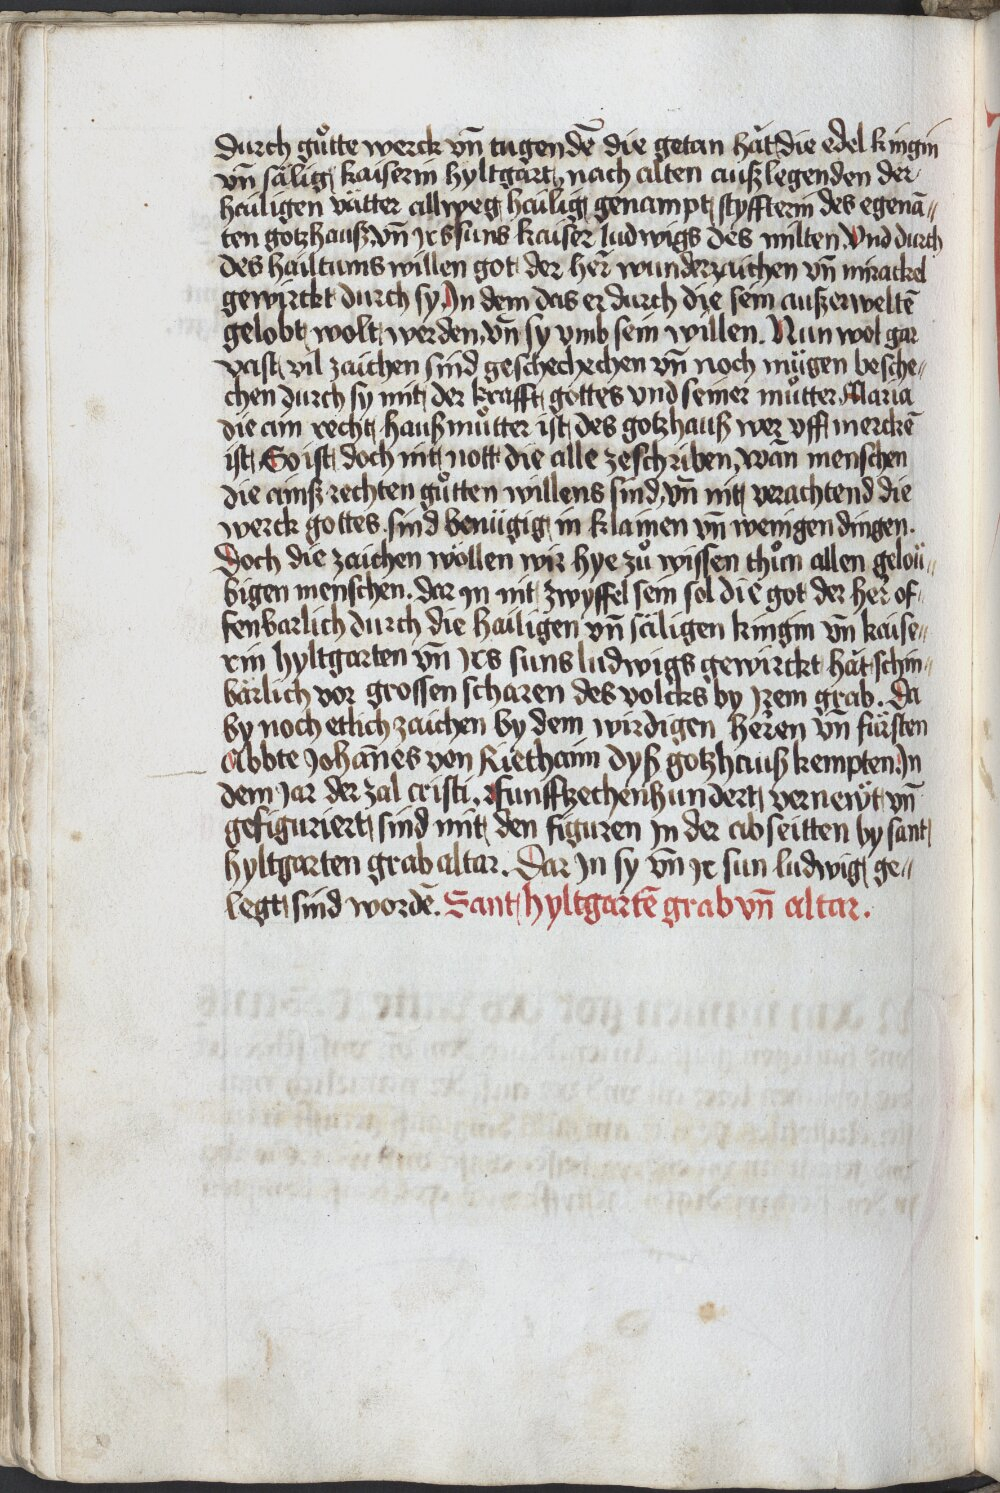 durch gůtte werck vn̄ tugendē die getan hǎt die edel kingin
vn̄ sälig kaiserin hyltgart, nach alten außlegenden der
hailigen vätter allweg hailig genampt styffterin des egenā„
ten gotzhauß, vn̄ jrs suns kaiser ludwigs des milten. Vnd durch
des hailtums willen got der her̄ wunderzaichen vn̄ mirackel
gewirckt durch sy. In dem das er durch die sein außerweltē
gelobt wolt werden, vn̄ sy vmb sein willen. Nun wol gar
vast vil zaichen sind geschechechen vn̄ noch mügen besche„
chen durch sy mit der krafft gottes vnd seiner můtter Maria
die ain recht haußmůtter ist des gotzhauß wer vff merckē
ist, So ist doch nit nott die alle zeschriben, wān menschen
die ainß rechten gůtten willens sind, vn̄ nit verachtend die
werck gottes, sind benügig in klainen vn̄ wenigen dingen.
Doch die zaichen wöllen wir hye zů wissen thůn allen geloü„
bigen menschen. dar jn nit zwyffel sein sol die got der her̄ of„
fenbarlich durch die hailigen vn̄ säligen kingin vn̄ kaise„
rin hyltgarten vn̄ jrs suns ludwigs gewirckt hǎt schin„
bärlich vor grossen scharen des volcks by jrem grab. Da
by noch etlich zaichen by dem wirdigen her̄en vn̄ fürsten
Abbte Johan̄es von Riethaim dyß gotzhauß kempten. In
dem Jar der zal cristi. Funffzechenhundert vernewt vn̄
gefiguriert sind mit den figuren jn der abseitten by sant
hyltgarten grab altar. Dar jn sy vn̄ jr sun ludwig ge„
legt sind wordē. Sant hyltgartē grab vn̄ altar.